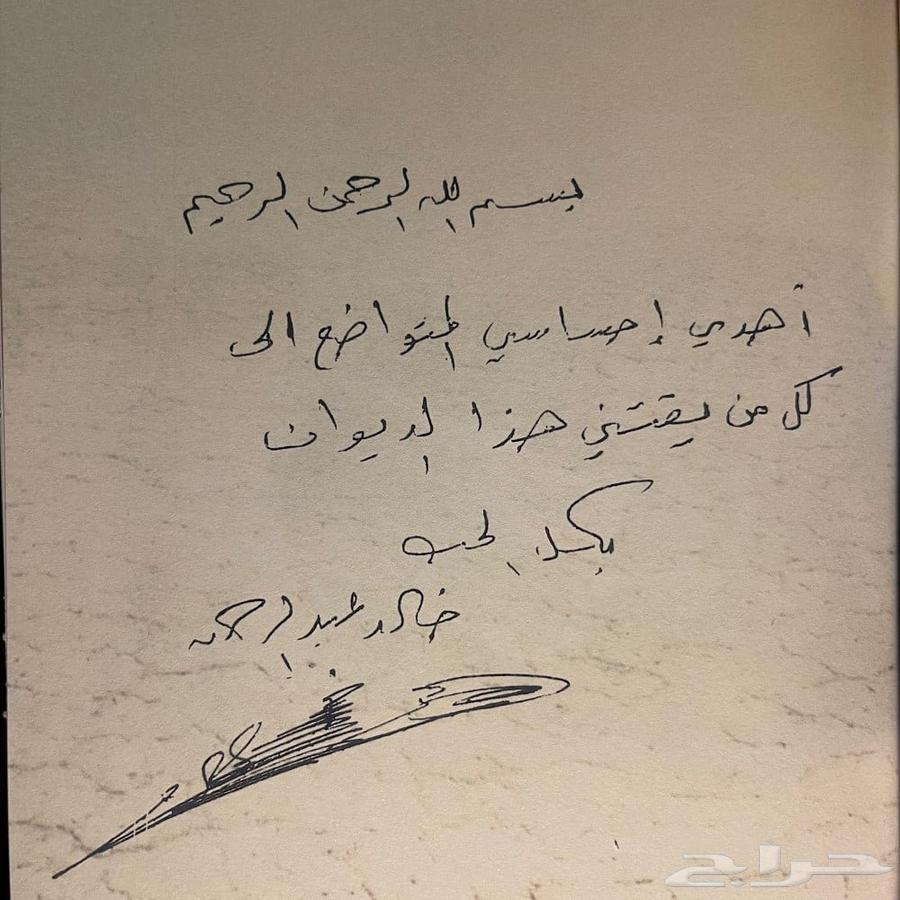 بسم الله الرحمن الرحيم
أهدي إحساسي المتواضع الى
كل من يقتني هذا الديوان
بكل الحب
خالد عبدالرحمن
حراج